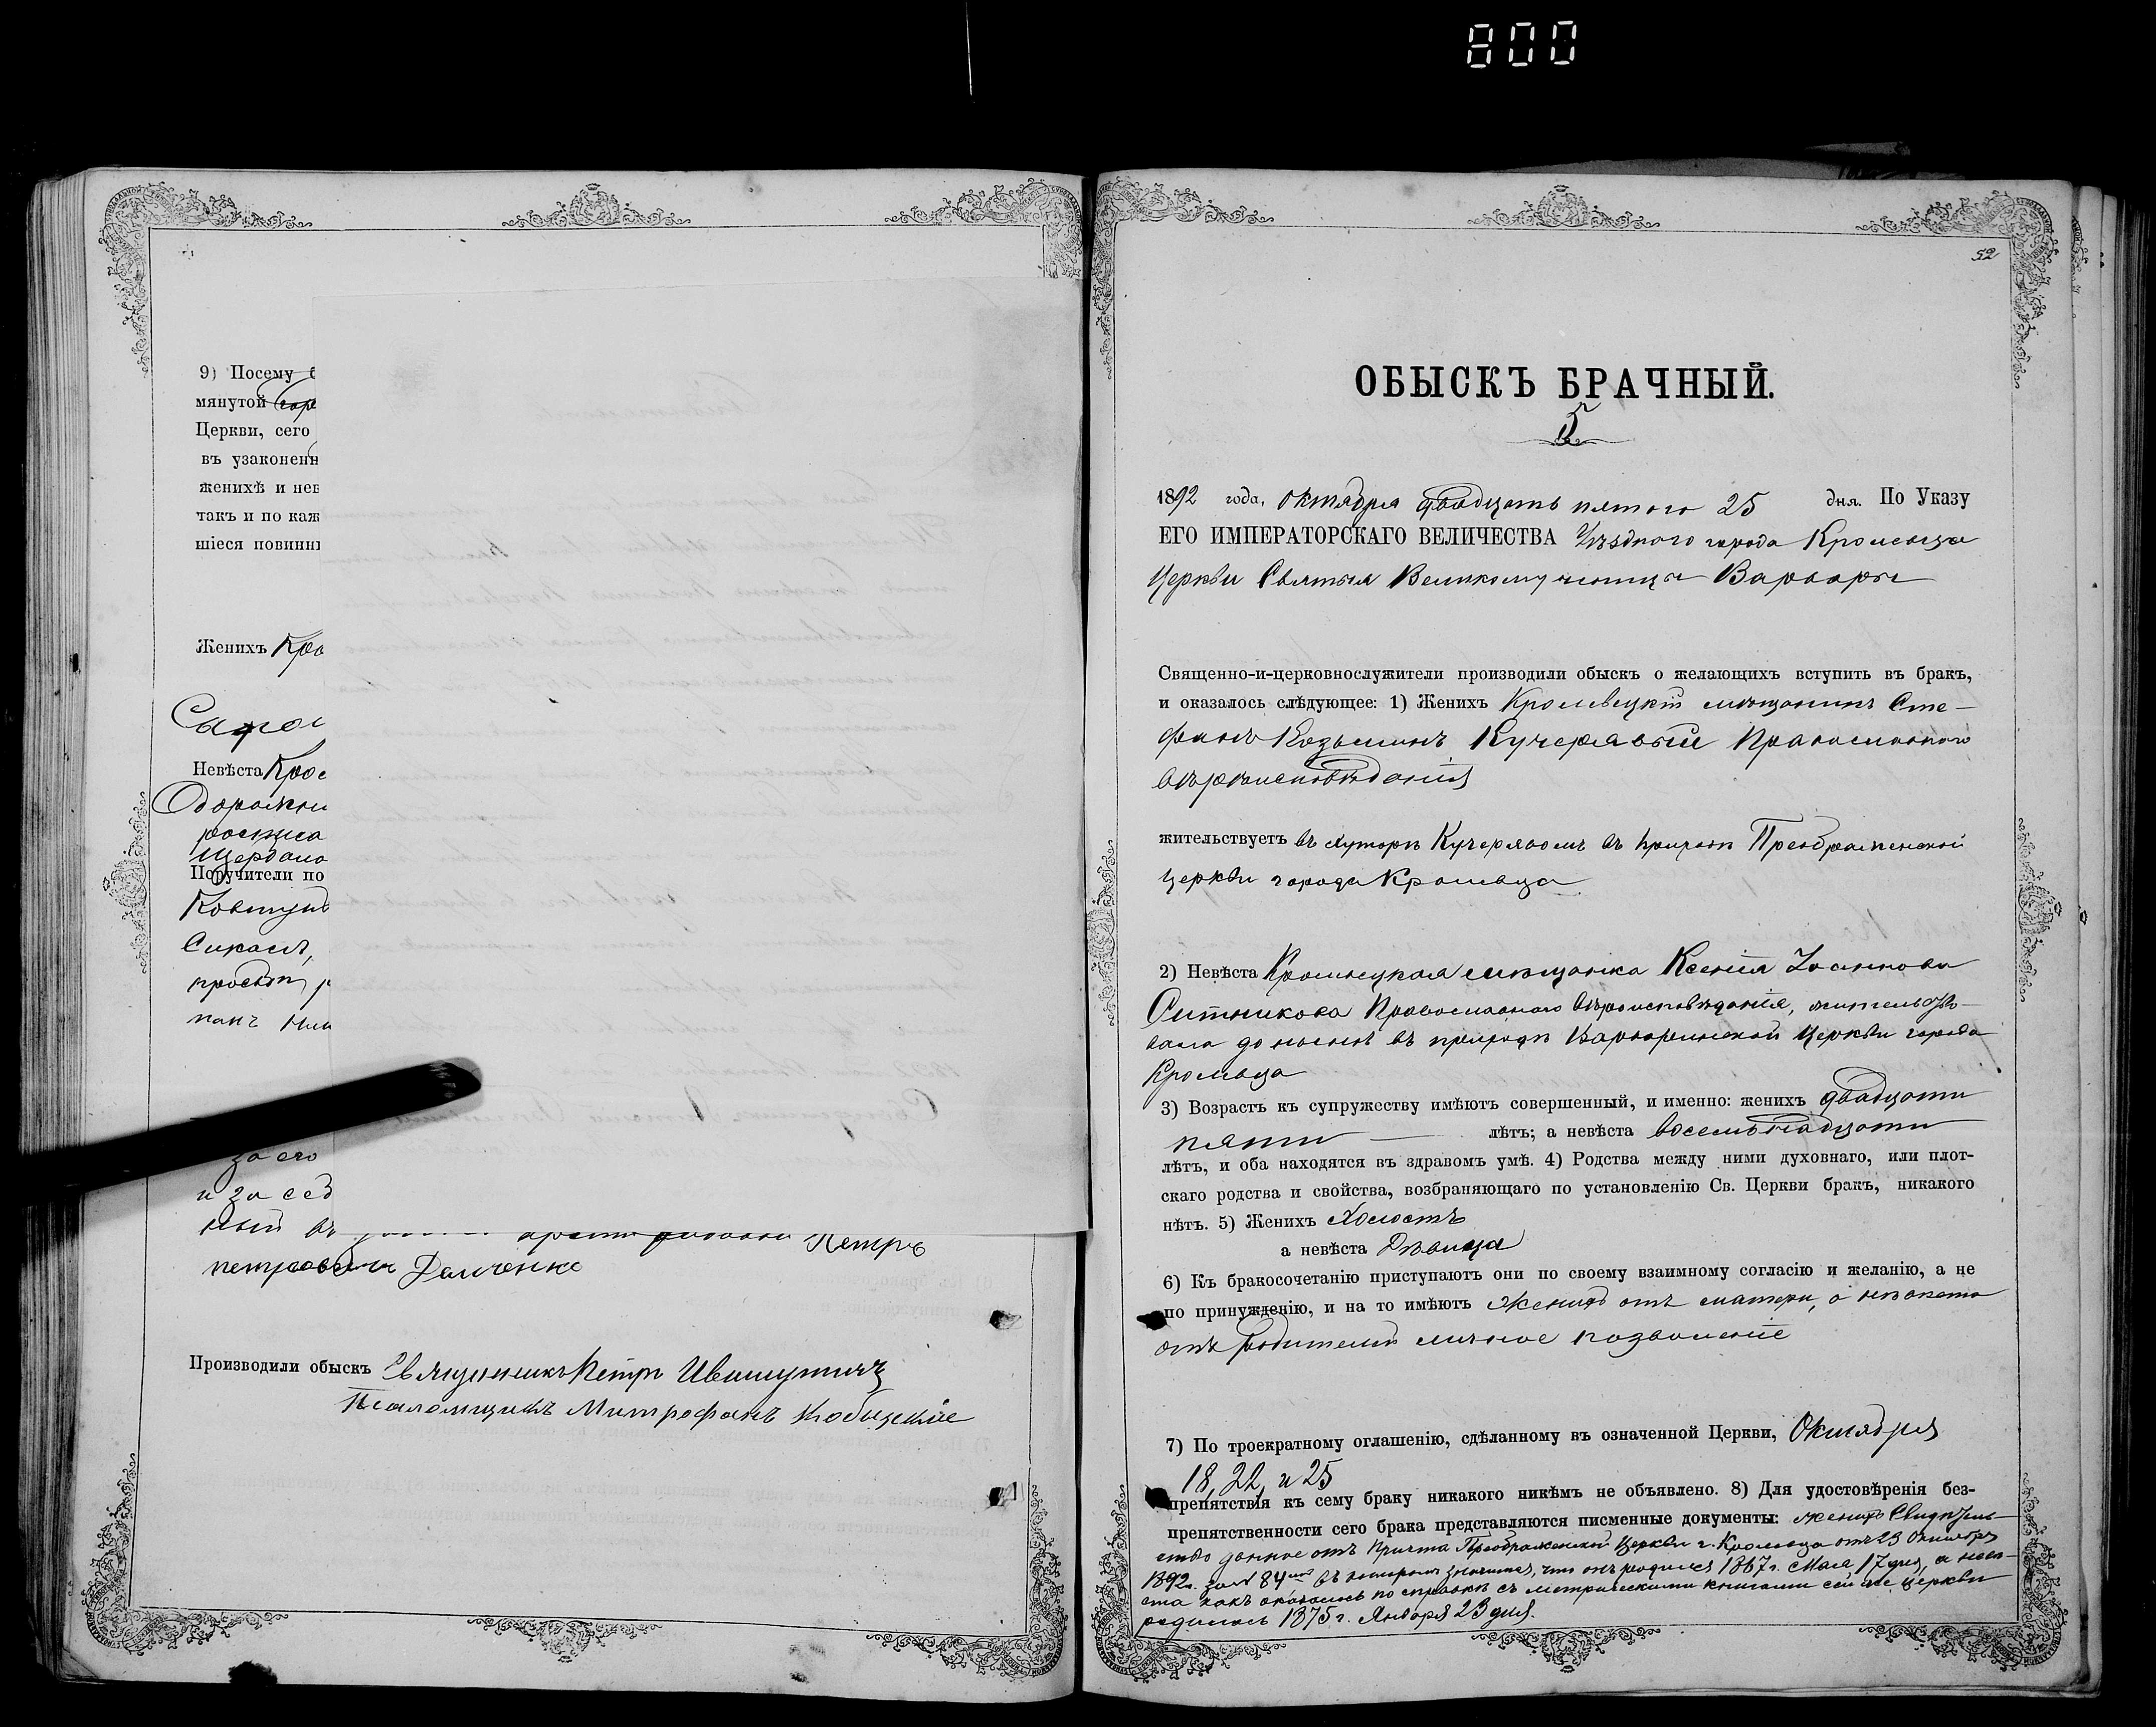 800
9) Посему б
мянутой гор
Церкви, сего
въ узаконенн
женихѣ и нев
такъ и по каж
шіеся повинны
Женихъ Кро
Невѣста Кро
Щербано
Поручители по
Ковтунъ
Сикачъ,
просьбѣ
за его
и за себ
ный въ Петръ
петровичъ Демченко
Производили обыскъ Священникъ Петръ Ивашутичъ
Псаломщикъ Митрофанъ Кобыцкій
52
ОБЫСКЪ БРАЧНЫЙ.
5
1892 года, Октября двадцать пятого 25 дня. По Указу
ЕГО ИМПЕРАТОРСКАГО ВЕЛИЧЕСТВА Уѣзднаго города Кролевца
Церкви Святыя Великомученицы Варвары
Священно-и-церковнослужители производили обыскъ о желающихъ вступить въ бракъ,
и оказалось слѣдующее: 1) Женихъ Кролевецкій мѣщанинъ Сте-
фанъ Козьминъ Кучерявый Православнаго
вѣроисповѣданія
жительствуетъ въ хуторѣ Кучерявомъ въ приходѣ Преображенской
церкви города Кролевца
2) Невѣста Кролевецкая мѣщанка Ксенія Іоаннова
Ситникова Православнаго вѣроисповѣданія, жительство-
вала до нынѣ въ приходѣ Варваринской Церкви города
Кролевца
3) Возрастъ къ супружеству имѣютъ совершенный, и именно: женихъ двадцати
пяти лѣтъ; а невѣста восемнадцати
лѣтъ, и оба находятся въ здравомъ умѣ. 4) Родства между ними духовнаго, или плот-
скаго родства и свойства, возбраняющаго по установленію Св. Церкви бракъ, никакого
нѣтъ. 5) Женихъ Холостъ
а невѣста Дѣвица
6) Къ бракосочетанію приступаютъ они по своему взаимному согласію и желанію, а не
по принужденію, и на то имѣютъ Женихъ отъ матери, а невѣста
отъ родителей личное позволеніе
7) По троекратному оглашенію, сдѣланному въ означенной Церкви, Октября
18, 22, и 25
препятствія къ сему браку никакого никѣмъ не объявлено. 8) Для удостовѣренія без-
препятственности сего брака представляются писменные документы: женихъ Свидѣтель-
ство данное отъ Причта Преображенской Церкви г. Кролевца отъ 23 Октября
1892 г. за № 84 въ которомъ значится, что онъ родился 1867 г. Мая 17 дня, а невѣ-
ста какъ оказалось по справкѣ съ метрическими книгами сей же церкви
родилась 1875 г. Января 23 дня.